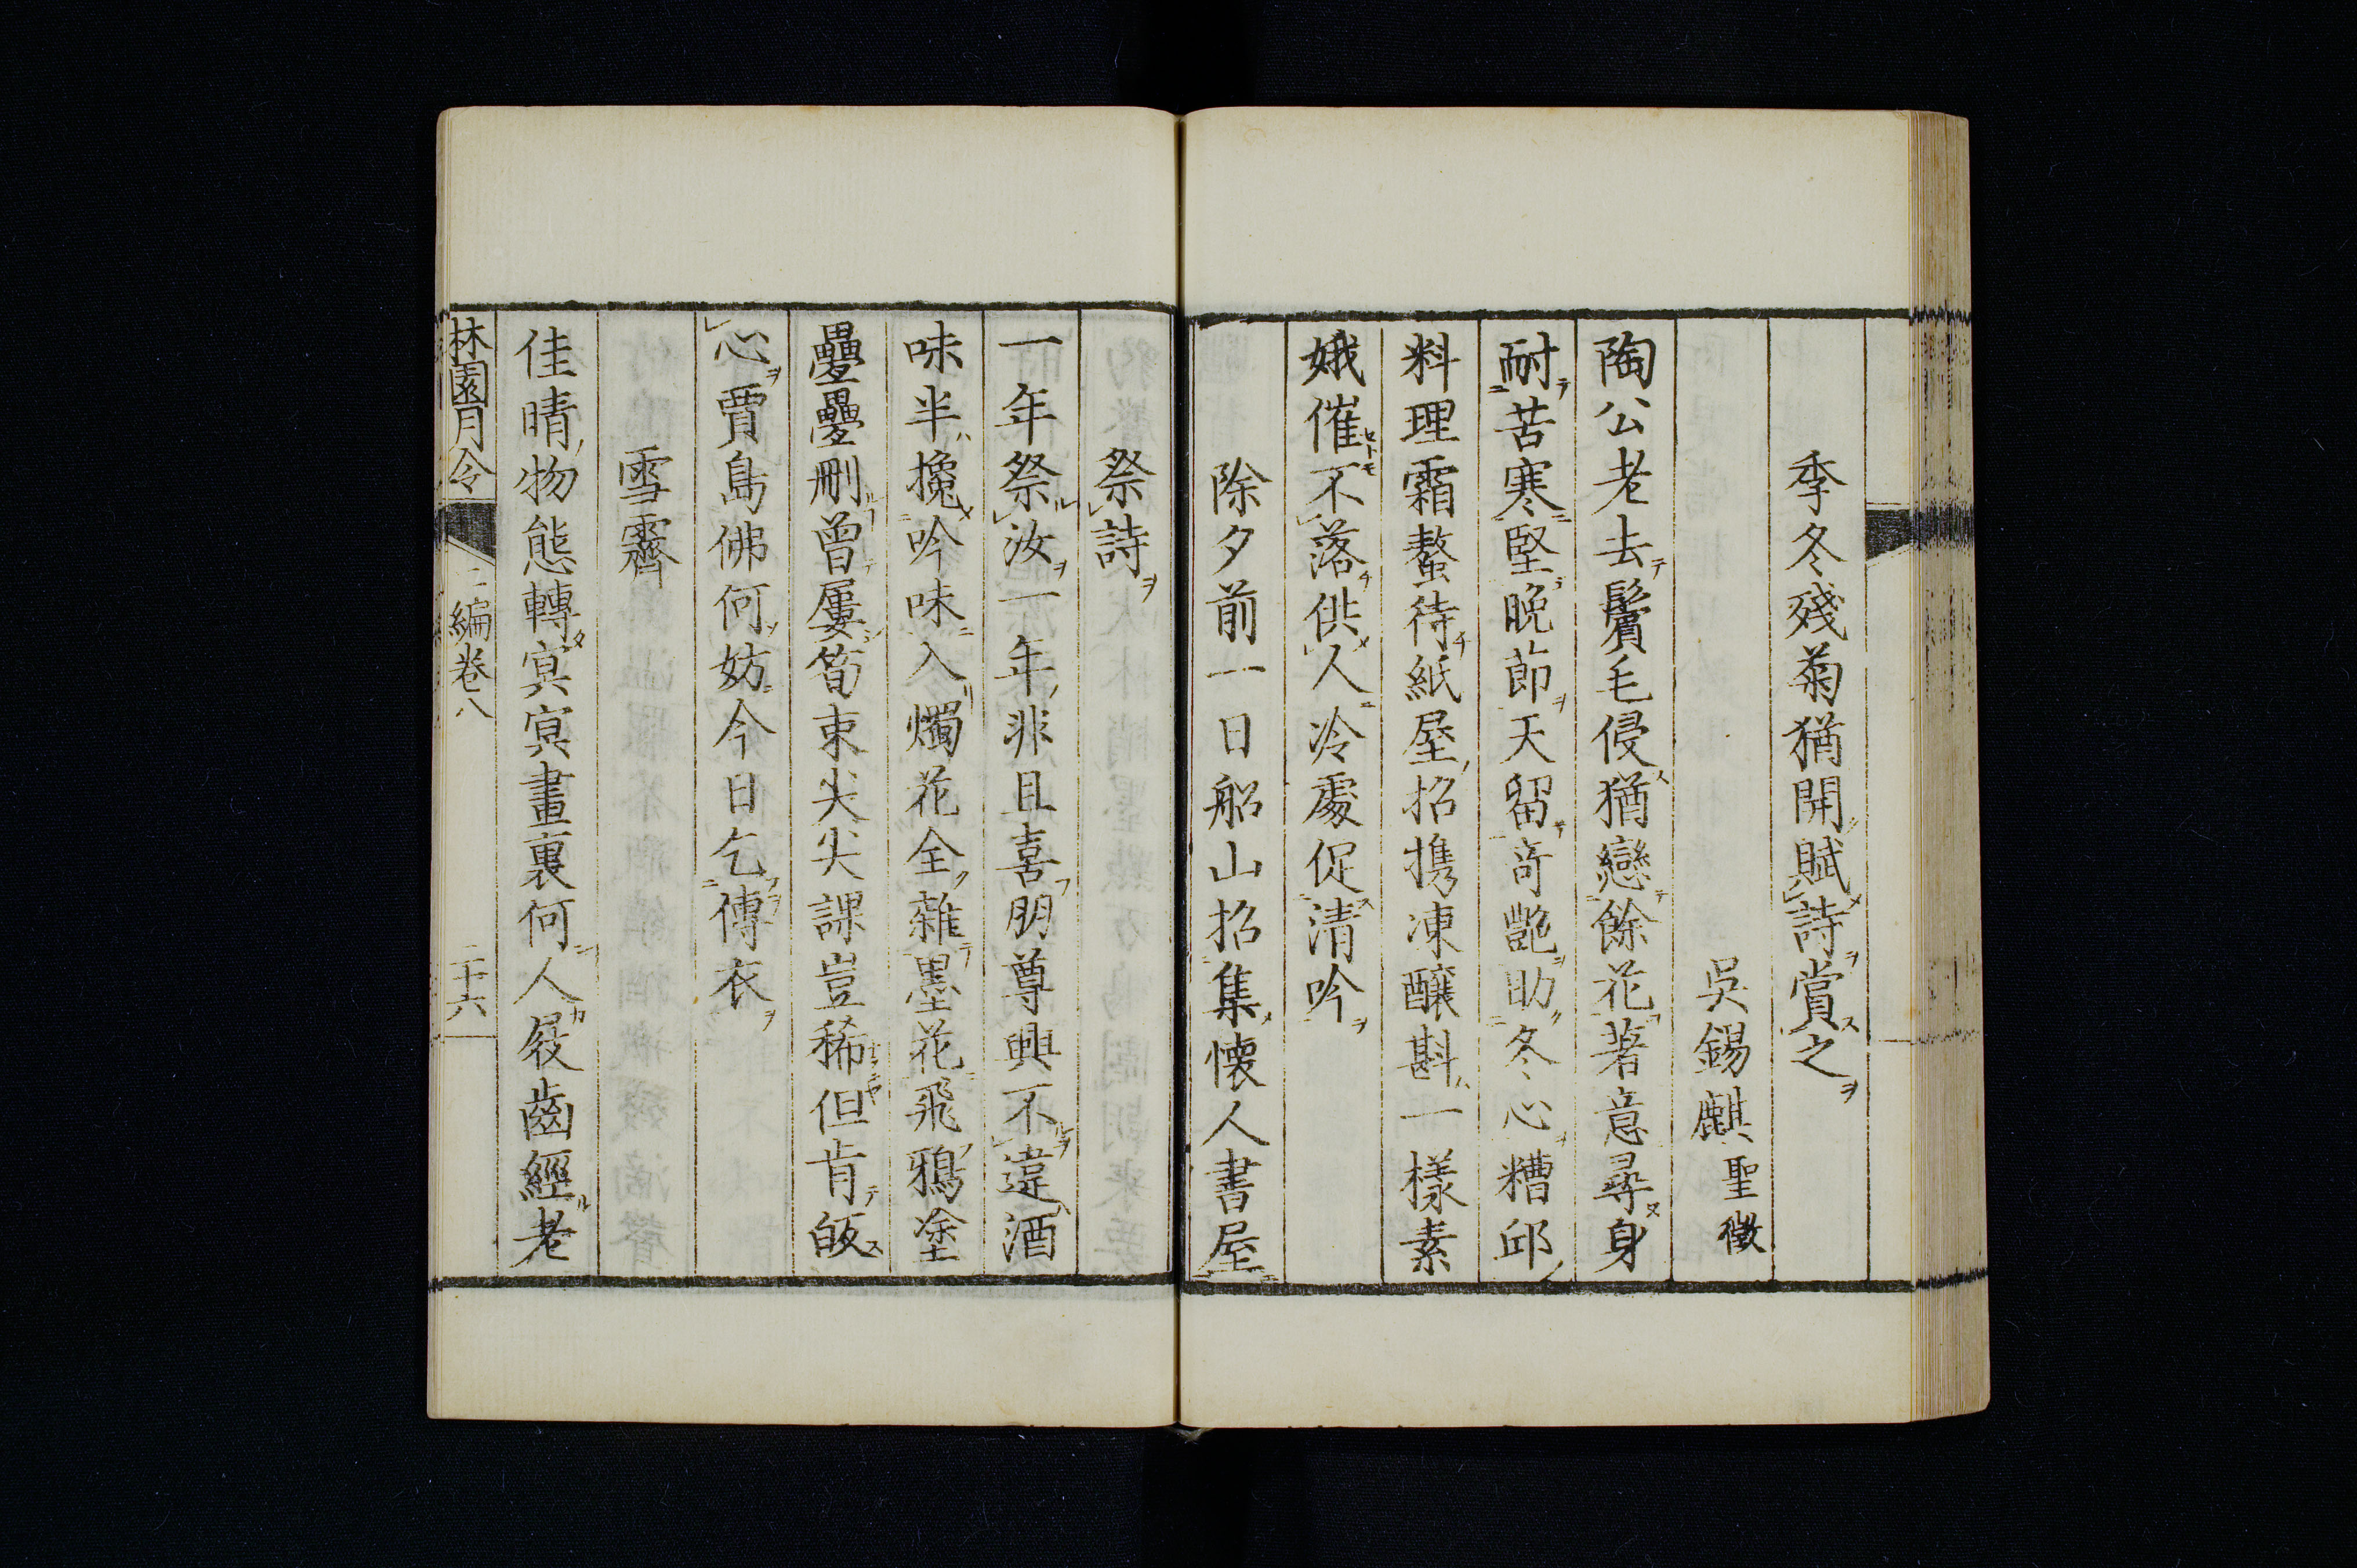 季冬殘菊猶開賦詩賞之
吳錫麒聖徵
陶公老去鬢毛侵猶戀餘花著意尋身
耐苦寒堅晚節天留奇艷助冬心糟邱
料理霜螯待紙屋招携凍釀斟一樣素
娥催不落供人冷處促清吟
除夕前一日船山招集懷人書屋
祭詩
一年祭汝一年非且喜朋尊興不違酒
味半攙吟味入燭花全雜墨花飛鴉塗
疊疊刪曾屢筍束尖尖課豈稀但肯皈
心賈島佛何妨今日乞傳衣
雪霽
佳晴物態轉冥冥畫裏何人屐齒經老
林園月令 二編卷八 二十六